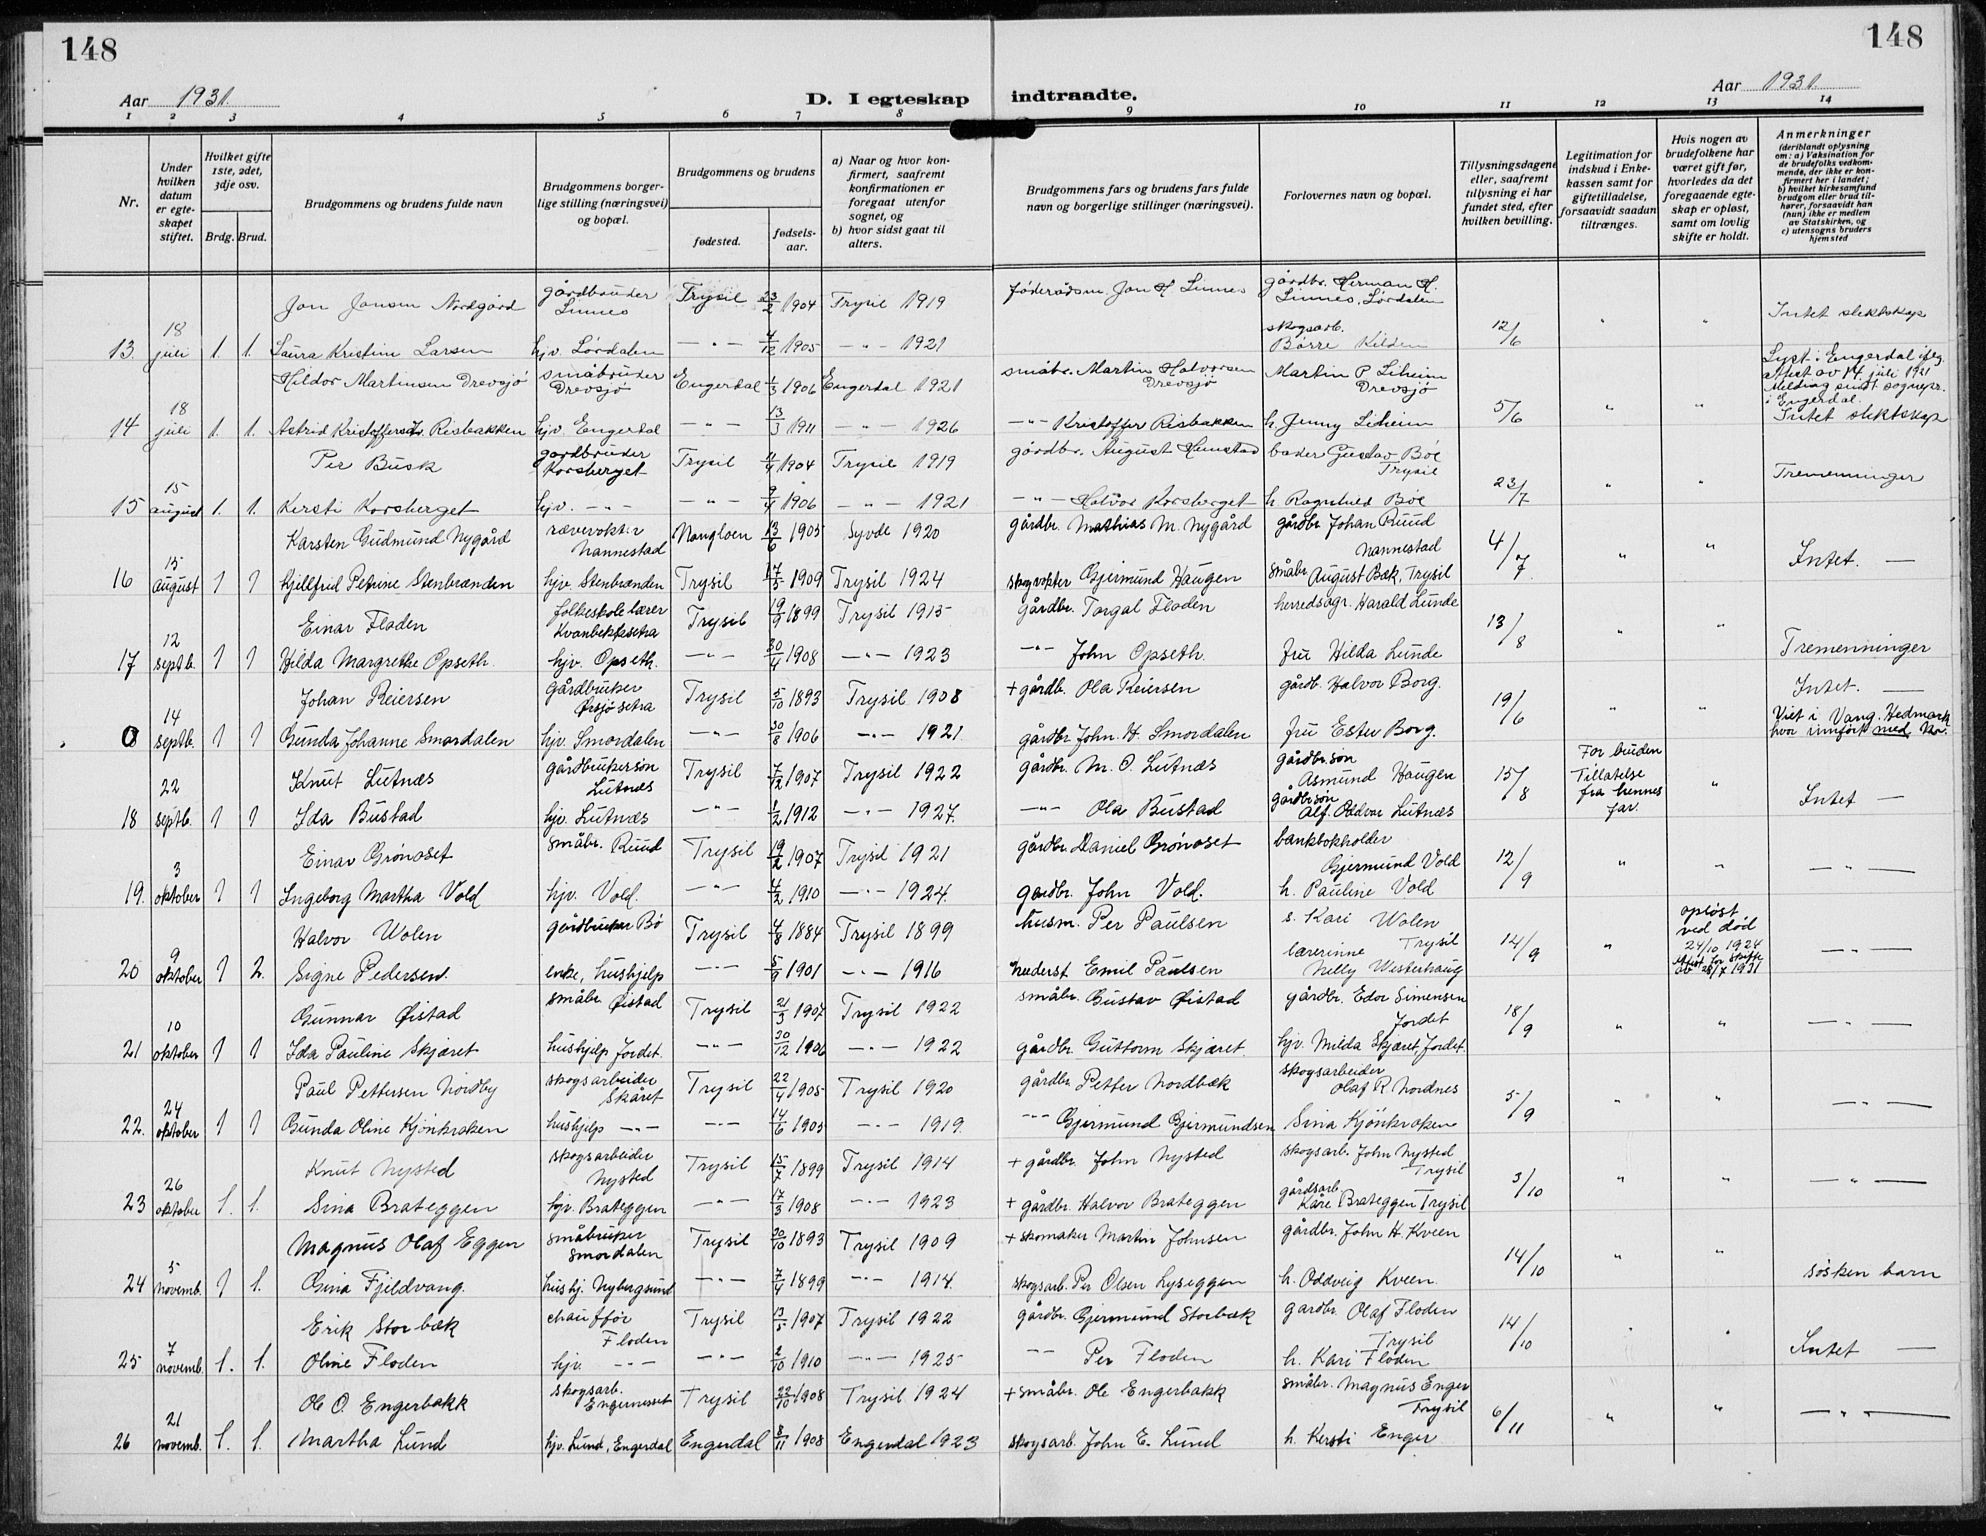 148
148
Aar 1931.
D. I egteskap indtraadte.
Aar 1931.
1 2 3 4 5 6 7 8 9 10 11 12 13 14
Nr.
Under hvilken datum er egteskapet stiftet.
Hvilket gifte 1ste, 2det, 3dje osv.
Brdg. Brud.
Brudgommens og brudens fulde navn
Brudgommens borgerlige stilling (næringsvei) og bopæl.
Brudgommens og brudens
fødested. fødselsaar.
a) Naar og hvor konfirmert, saafremt konfirmationen er foregaat utenfor sognet, og
b) hvor sidst gaat til alters.
Brudgommens fars og brudens fars fulde navn og borgerlige stillinger (næringsvei).
Forlovernes navn og bopæl.
Tillysningsdagene eller, saafremt tillysning ei har fundet sted, efter hvilken bevilling.
Legitimation for indskud i Enkekassen samt for giftetilladelse, forsaavidt saadan tiltrænges.
Hvis nogen av brudefolkene har været gift før, hvorledes da det foregaaende egteskap er opløst, samt om lovlig skifte er holdt.
Anmerkninger (deriblandt oplysning om: a) Vaksination for de brudefolks vedkommende, der ikke er konfirmert her i landet; b) hvilket kirkesamfund brudgom eller brud tilhører, forsaavidt han (hun) ikke er medlem av Statskirken, og c) utensogns bruders hjemsted
Jon Jonsen Nordgård gårdbruker Linnes Trysil 23/2 1904 Trysil 1919 føderådsm. Jon H Linnes gårdbr. Herman H. Linnes, Lørdalen
13. 18 juli 1. 1. Laura Kristine Larsen hjv. Lørdalen — " — 4/12 1905 — " — 1921 skogsarb. Børre Kilden 12/6 " " Intet slektskap
Hildor Martinsen Drevsjø småbruker Drevsjø Engerdal 1/3 1906 Engerdal 1921 småbr. Martin Halvorsen Drevsjø Martin P. Liheim Drevsjø Lyst i Engerdal ifølg. attest av 14. juli 1931 Melding sendt sognepr. i Engerdal.
14 18 juli 1. 1. Astrid Kristoffersd. Risbakken hjv. Engerdal — " — 13/3 1911 — " — 1926 — " — Kristoffer Risbakken h. Jenny Liheim 5/6 " " Intet slektskap
Per Busk gardbruker Korsberget Trysil 4/4 1904 Trysil 1919 gårdbr. August Hemstad Gustav Bøe Trysil
15 15 august 1. 1. Kersti Korsberget hjv. — " — — " — 9/4 1906 — " — 1921 — " — Halvor Korsberget h. Ragnhild Bøe 23/7 " " Tremenninger
Karsten Gudmund Nygård rævevokter Nannestad 13/6 1905 Syvde 1920 gårdbr. Mathias M. Nygård gårdbr Johan Ruud Nannestad
16 15 August 1 1 Kjellfrid Petrine Stenbrænden hjv. Stenbrænden Trysil 17/5 1909 Trysil 1924 skogvokter Gjermund Haugen småbr August Bæk, Trysil 4/7 " " Intet. —
Einar Floden folkeskolelærer Kvanbekksetra Trysil 19/9 1899 Trysil 1915 gårdbr. Torgal Floden herredsagr. Harald Lunde
17 12 septb. 1 1 Hilda Margrethe Opseth. hjv. Opseth. — " — 30/4 1908 — " — 1923 — " — John Opseth. fru Hilda Lunde 13/8 " " Tremenninger
Johan Reiersen gårdbruker Ørsjøsetra Trysil 5/10 1893 Trysil 1908 + gårdb. Ola Reiersen gårdb. Halvor Borg. Intet. —
0 14 septb. 1 1 Gunda Johanne Smordalen hjv. Smordalen — " — 30/8 1906 — " — 1921. gårdbr John. H. Smordalen fru Ester Borg. 19/6 " " Viet i Vang. Hedmark hvor innført med Nr.
Knut Lutnæs gårdbrukersøn Lutnæs Trysil 7/12 1907 Trysil 1922 gårdbr. M. O. Lutnæs gårdbr.søn Asmund Haugen
18 22 septb. 1 1 Ida Bustad hjv. Lutnæs — " — 1/2 1912 — " — 1927. — " — Ola Bustad gårdbrsøn Alf. Oddvar Lutnæs 15/8 For bruden Tillatelse fra hennes far. " Intet —
Einar Grønoset småbr. Ruud Trysil 19/2 1907 Trysil 1921 gårdbr. Daniel Grønoset bankbokholder Gjermund Vold
19. 3 oktober 1 1 Ingeborg Martha Vold hjv. Vold. — " — 4/2 1910 — " — 1924. gardbr. John Vold. h. Pauline Vold 12/9 " " — " —
Halvor Wolen gårdbruker Bø Trysil 4/8 1884 Trysil 1899 husm. Per Paulsen s. Kari Wolen Trysil
20 9 oktober 1 2. Signe Pedersen. enke, hushjelp — " — 5/9 1901 — " — 1916 Emil Paulsen lærerinne Nelly Westerhaug 14/9 " opløst ved død 24/10 1924 Attest for skifte av 28/7 1931 — " —
Gunnar Øistad småbr Øistad Trysil 21/3 1907 Trysil 1922 småbr. Gustav Øistad gårdbr. Edor Simensen Jordet
21 10 oktober 1 1 Ida Pauline Skjæret hushjelp Jordet. — " — 30/12 1906 — " — 1922 gårdbr. Guttorm Skjæret hjv. Milda Skjæret, Jordet. 18/9 " " — " —
Paul Pettersen Nordby skogsarbeider Skåret Trysil 22/4 1905 Trysil 1920 gårdbr. Petter Nordbæk skogsarbeider Olaf R Nordnes
22. 24 oktober 1 1 Gunda Oline Kjönkroken hushjelp — " — — " — 14/6 1905 — " — 1919. — " — Gjermund Gjermundsen Sina Kjönkroken 5/9 " " — " —
Knut Nysted skogsarbeider Nysted Trysil 15/7 1899 Trysil 1914 + gårdbr. John Nysted skogsarb. John Nysted Trysil
23 26 oktober 1. 1. Sina Brateggen hjv. Brateggen — " — 17/3 1908 — " — 1923 + gårdbr. Halvor Brateggen gårdsarb. Kåre Brateggen Trysil 3/10 " " — " —
Magnus Olaf Eggen småbruker Smordalen Trysil 30/10 1893 Trysil 1909 + skomaker Martin Johnsen gårdbr. John H. Kveen
24 5 novemb. 1 1. Gina Fjeldvang. hushj. Nybergsund — " — 7/4 1899 — " — 1914. skogsarb. Per Olsen Lyseggen h. Oddveig Kveen 14/10 " " søsken barn
Erik Storbæk chauffør Floden Trysil 13/5 1907 Trysil 1922 gårdbr. Gjermund Storbæk gardbr. Olaf Floden Trysil
25 7 novemb. 1. 1. Oline Floden hjv. — " — — " — 2/10 1910 — " — 1925 — " — Per Floden h. Kari Floden 14/10 " " Intet —
Ole O. Engerbakk skogsarb. Engerneset Trysil 22/10 1908 Trysil 1924 + småbr. Ole Engerbakk småbr. Magnus Enger Trysil
26 21 novemb. 1. 1. Martha Lund hjv. Lund, Engerdal Engerdal 8/11 1908 Engerdal 1923 skogsarb. John E. Lund h. Kersti Enger 6/11 " " — " —